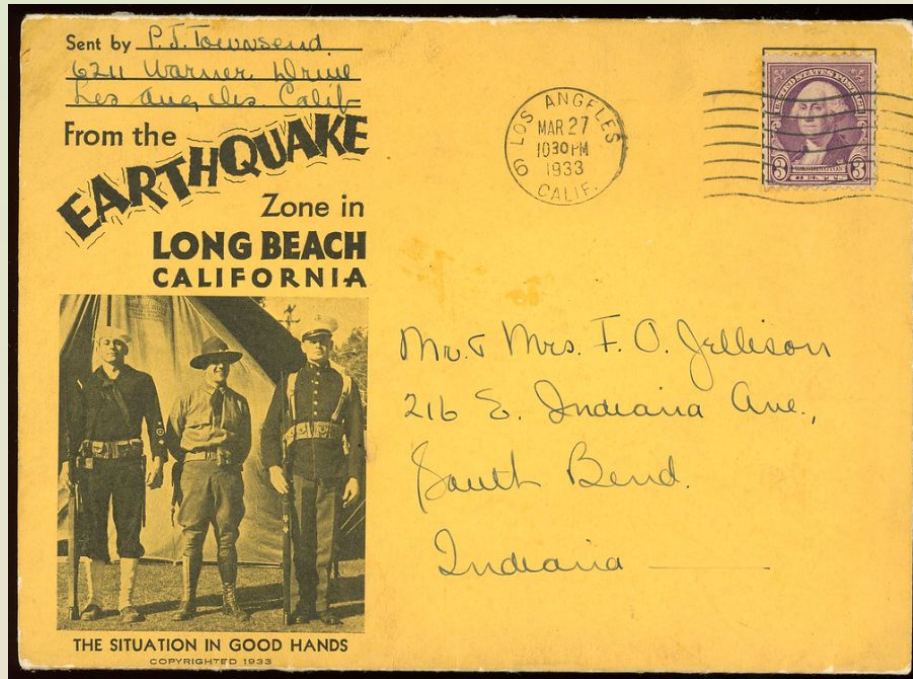 Sent by P.J. Townsend
6211 Warner Drive
Los Angeles. Calif
From the
EARTHQUAKE
Zone in
LONG BEACH
CALIFORNIA
LOS ANGELES
MAR 27
1030 PM
1933
CALIF.
9
UNITED STATES POSTAGE
3 3
Mr. & Mrs. F. O. Jellison
216 E. Indiana Ave.,
South Bend.
Indiana
THE SITUATION IN GOOD HANDS
COPYRIGHTED 1933